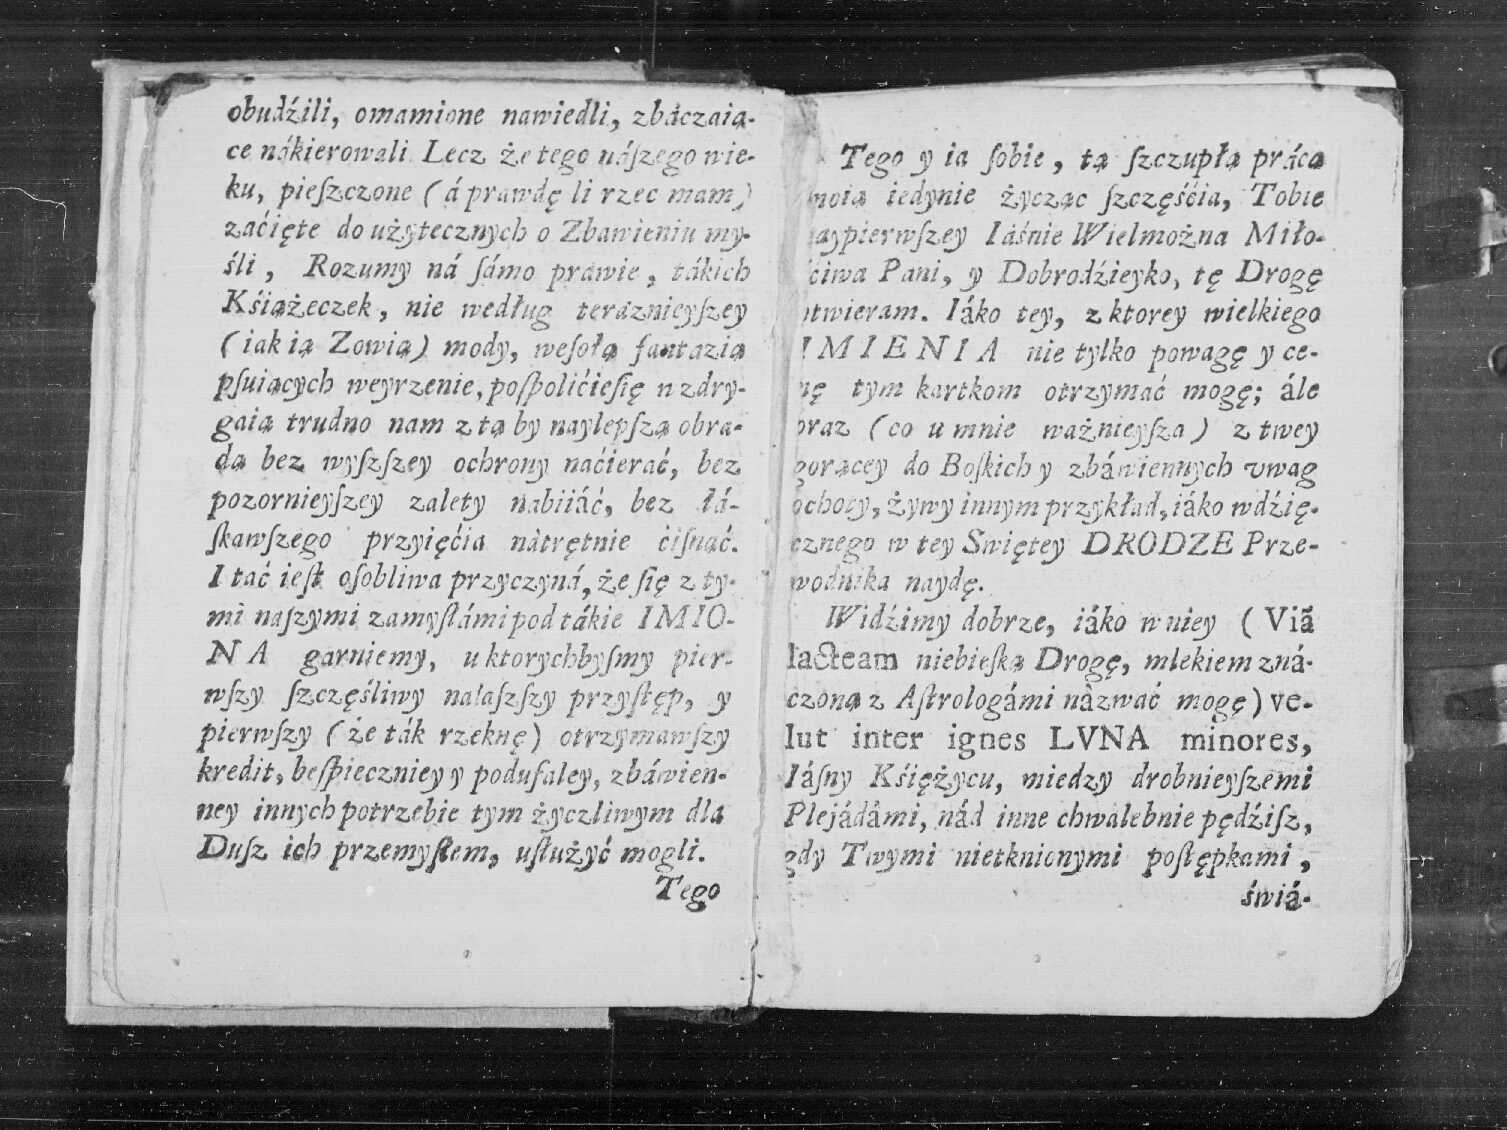 obudźili, omamione nawiedli, zbáczaią-
ce nákierowali Lecz że tego nászego wie-
ku, pieſzczone (á prawdę li rzec mam)
zaćięte do użytecznych o Zbawieniu my-
śli, Rozumy ná ſámo prawie, tákich
Kśiążeczek, nie według teraznieyſzey
(iak ią Zowią) mody, weſołą fantazią
pſuiących weyrzenie, poſpolićieſię nzdry-
gaią trudno nam z tą by naylepſzą obra-
dą bez wyſzſzey ochrony naćierać, bez
pozornieyſzey zalety nabiiáć, bez łá-
ſkawſzego przyięćia nàtrętnie ćiſnąć.
I tać ieſt oſobliwa przyczyná, że ſię z ty-
mi naſzymi zamyſłámi pod tákie IMIO-
NA garniemy, u ktorychbyſmy pier-
wſzy ſzczęśliwy nalaſzſzy przyſtęp, y
pierwſzy (że ták rzeknę) otrzymawſzy
kredit, beſpieczniey y poduſaley, zbáwien-
ney innych potrzebie tym życzliwym dla
Duſz ich przemyſłem, uſłużyć mogli.
Tego
Tego y ia ſobie, tą ſzczupłą prácą
moią iedynie życząc ſzczęśćia, Tobie
naypierwſzey Iáśnie Wielmożna Miło-
śćiwa Pani, y Dobrodźieyko, tę Drogę
otwieram. Iáko tey, z ktorey wielkiego
IMIENIA nie tylko powagę y ce-
nę tym kartkom otrzymać mogę; ále
oraz (co u mnie ważnieyſza) z twey
gorącey do Boſkich y zbáwiennych vwag
ochoty, żywy innym przykład, iáko wdźię-
cznego w tey Swiętey DRODZE Prze-
wodnika naydę.
Widźimy dobrze, iáko w niey (Viã
lacteam niebieſką Drogę, mlekiem zná-
czoną z Aſtrologámi názwać mogę) ve-
lut inter ignes LVNA minores,
Iáſny Kśiężycu, miedzy drobnieyſzemi
Plejádámi, nád inne chwalebnie pędźiſz,
gdy Twymi nietknionymi poſtępkami,
świá-